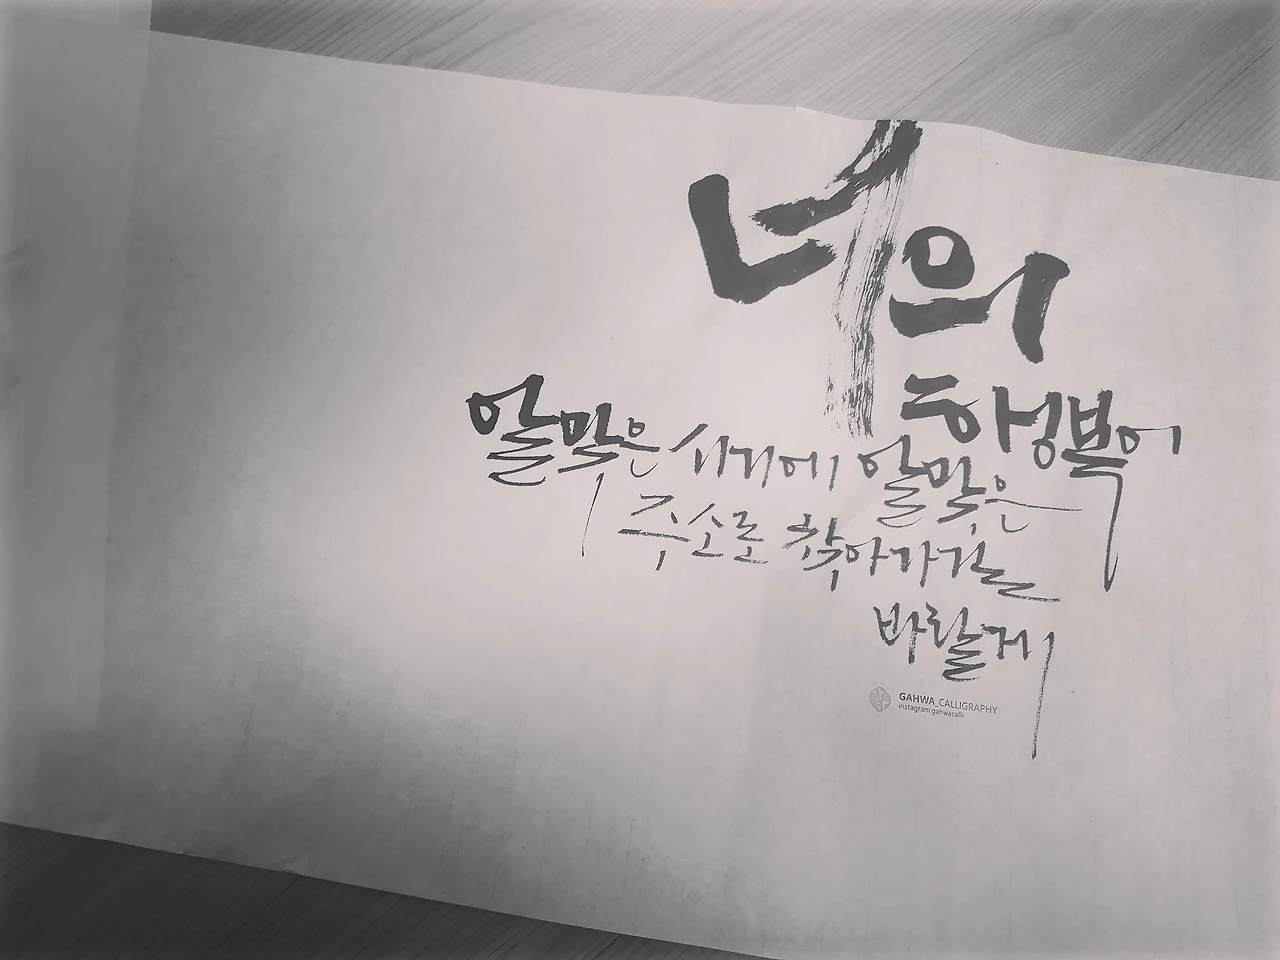 너의
행복이
알맞은 시기에 알맞은
주소로 찾아가길
바랄게
GAHWA_CALLIGRAPHY
instagram:gahwacalli